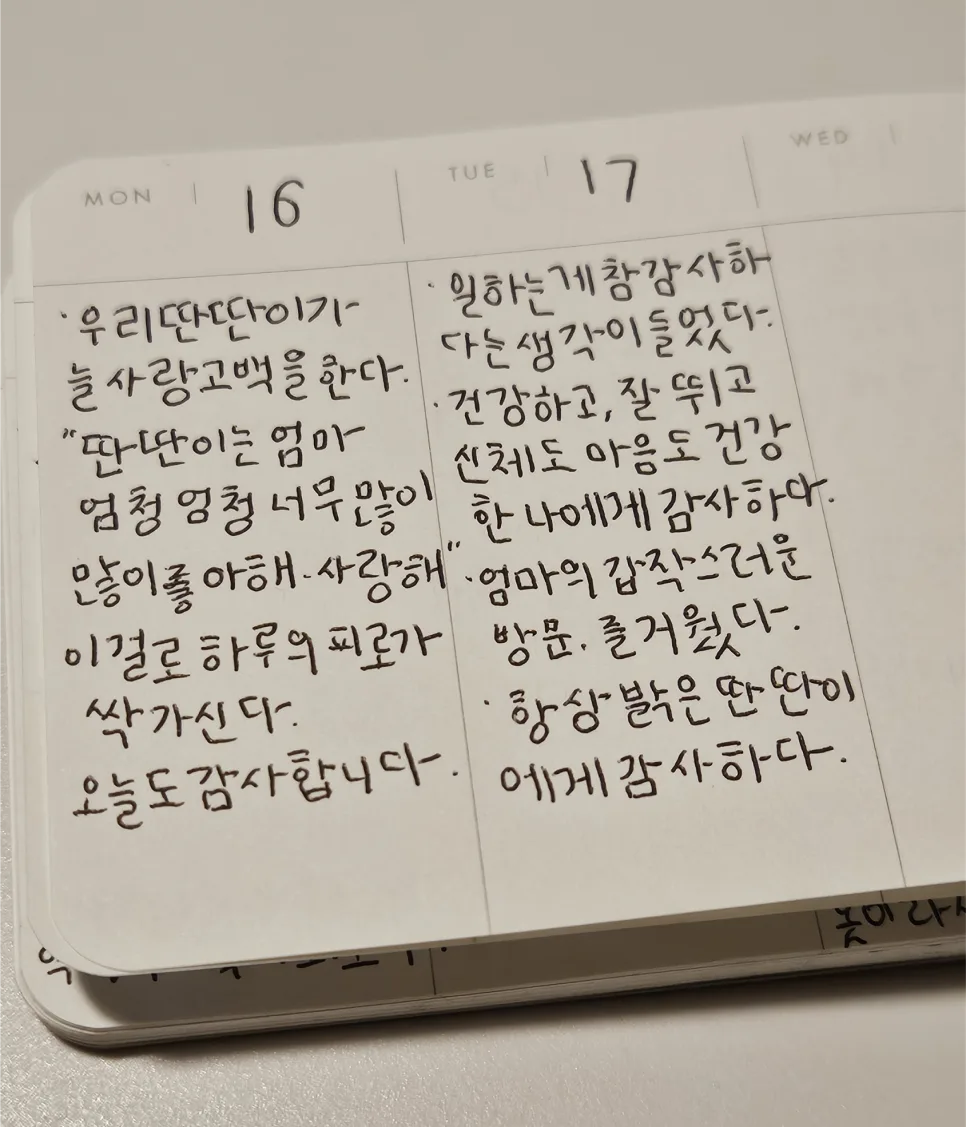 MON | 16
· 우리딴딴이가
늘 사랑고백을 한다.
"딴딴이는 엄마
엄청 엄청 너무 많이
많이 좋아해. 사랑해"
이걸로 하루의 피로가
싹 가신다.
오늘도 감사합니다.
TUE | 17
· 일하는게 참 감사하
다는 생각이 들었다.
· 건강하고, 잘 뛰고
신체도 마음도 건강
한 나에게 감사하다.
· 엄마의 갑작스러운
방문. 즐거웠다.
· 항상 밝은 딴딴이
에게 감사하다.
WED |